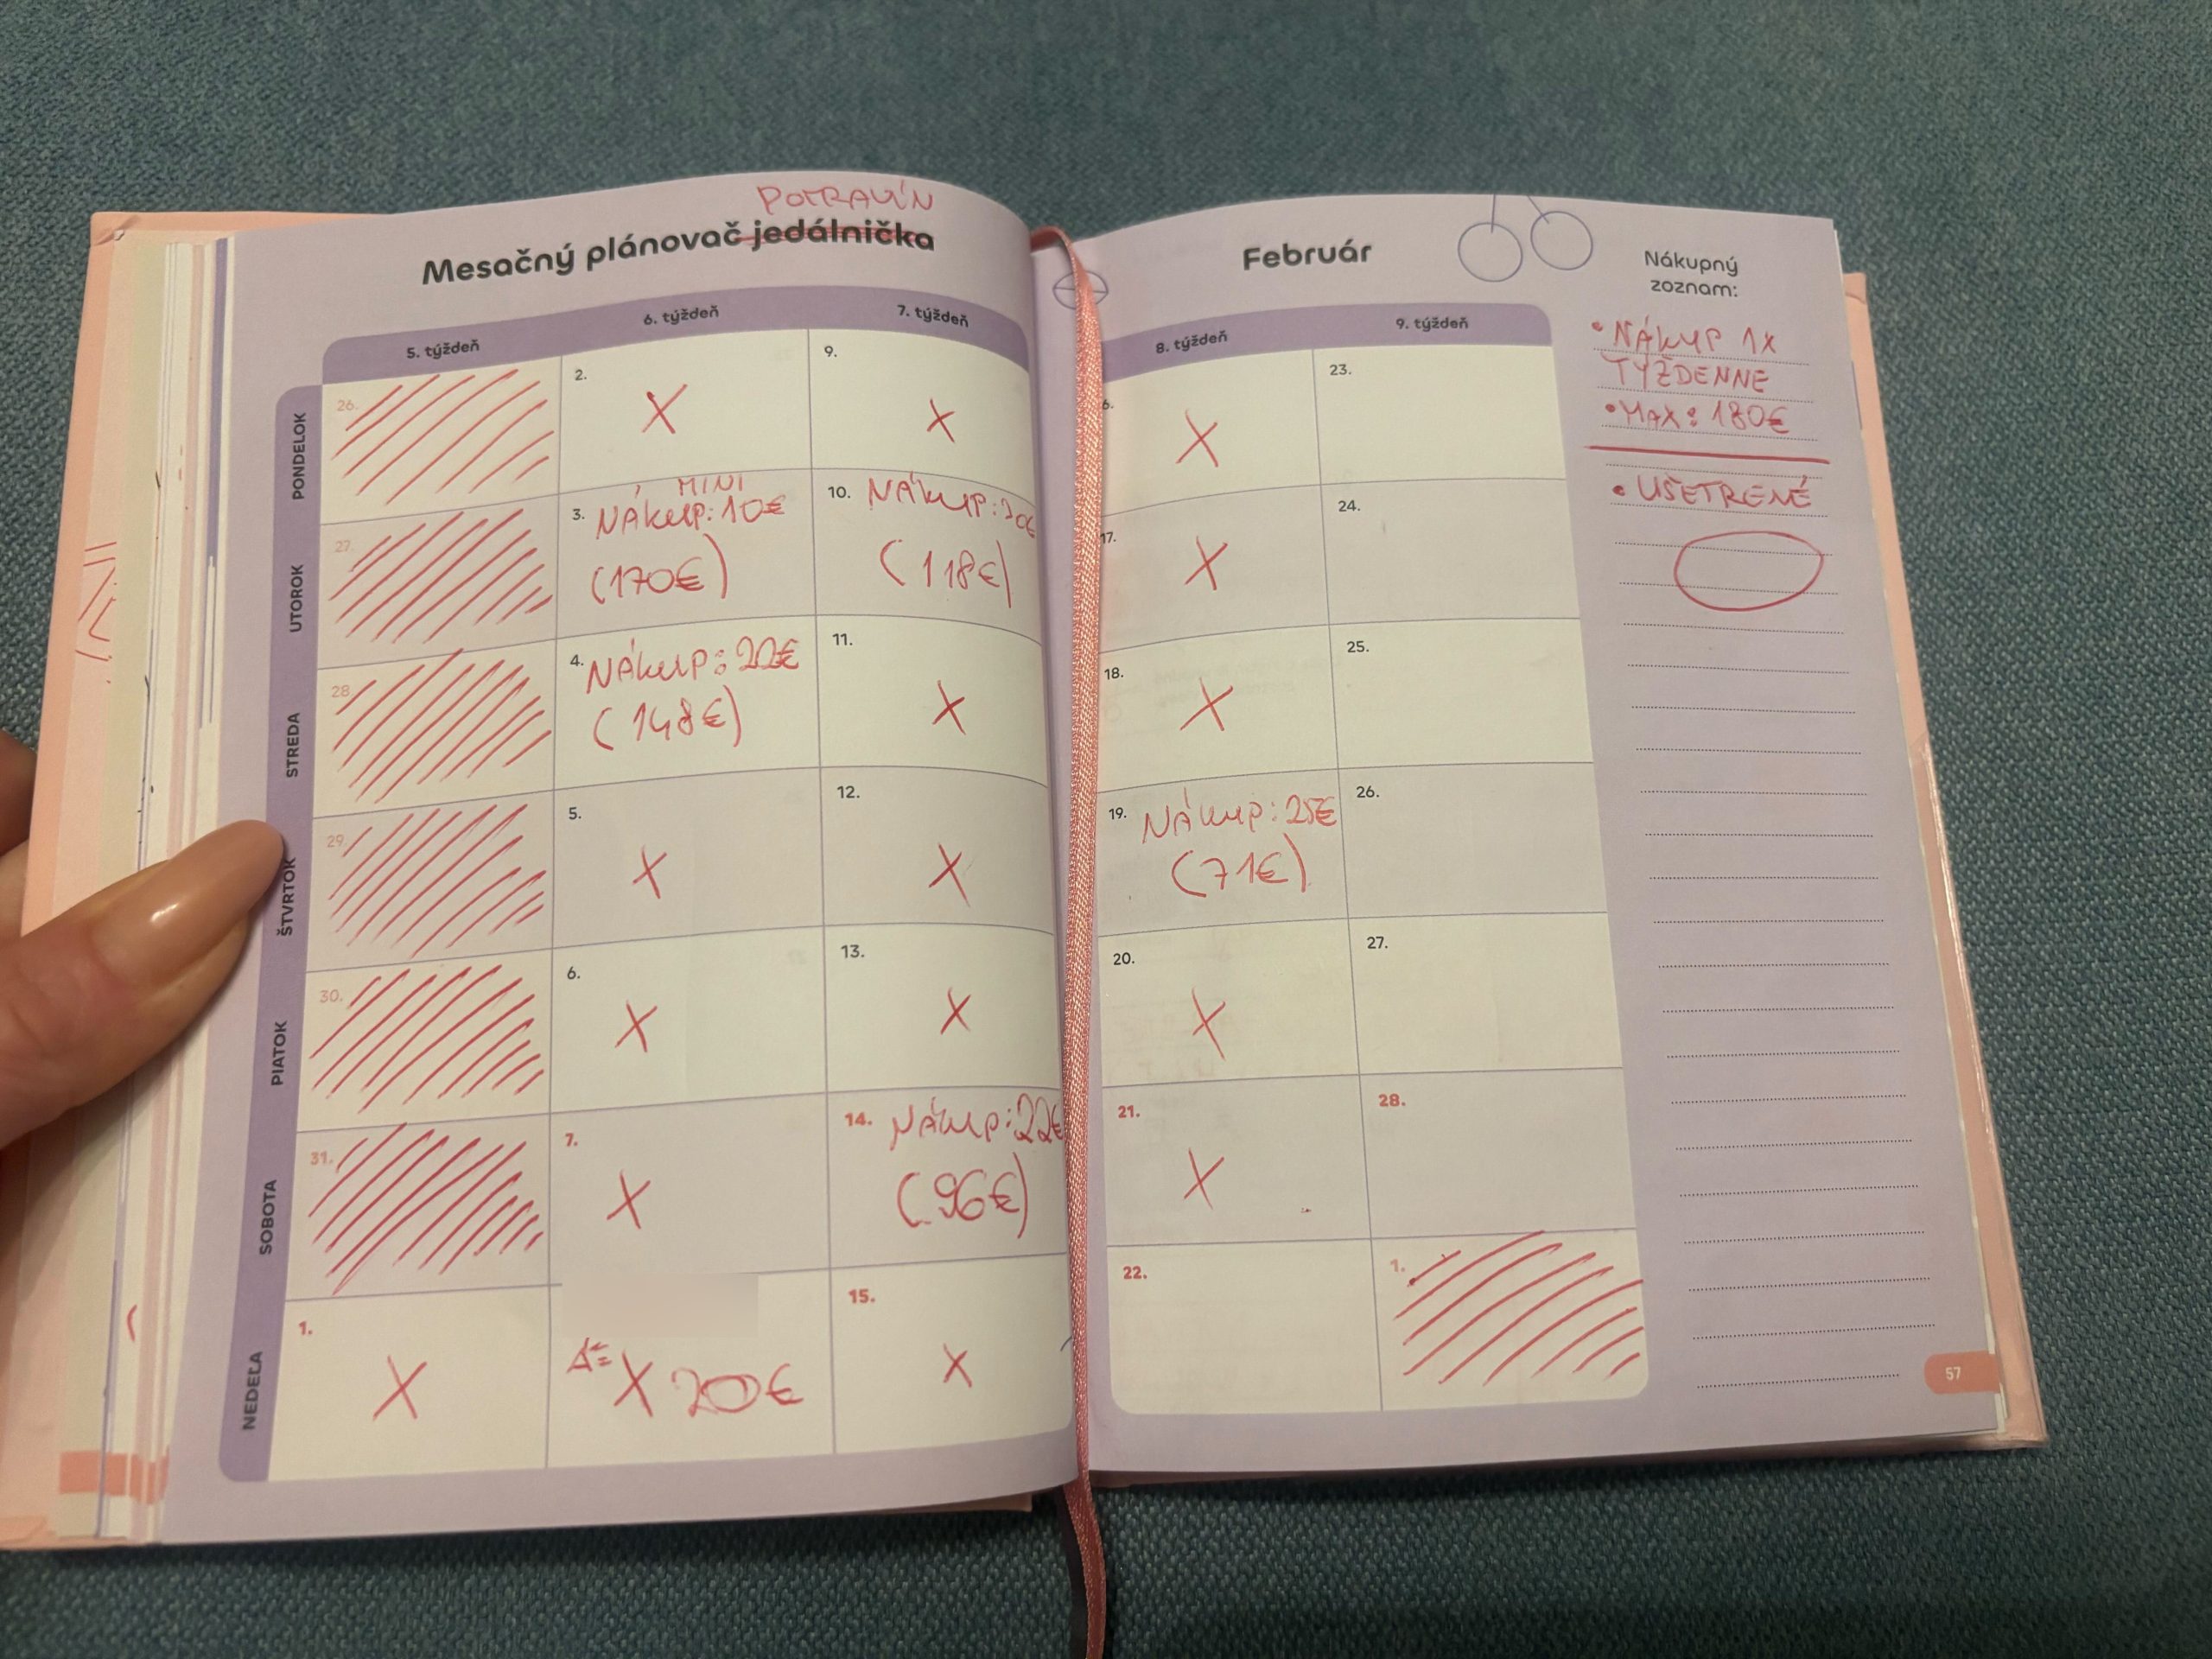 POTRAVÍN
Mesačný plánovač jedálnička
5. týždeň
6. týždeň
7. týždeň
PONDELOK
26.
2.
X
9.
X
UTOROK
27.
3.
MINI
NÁKUP: 10€
(170€)
10. NÁKUP: 30€
(118€)
STREDA
28
4. NÁKUP: 22€
(148€)
11.
X
ŠTVRTOK
29.
5.
X
12.
X
PIATOK
30.
6.
X
13.
X
SOBOTA
31.
7.
X
14. NÁKUP: 22€
(96€)
NEDEĽA
1.
X
X 20€
15.
X
Február
8. týždeň
9. týždeň
6.
X
23.
17.
X
24.
18.
X
25.
19. NÁKUP: 25€
(71€)
26.
20.
X
27.
21.
X
28.
22.
1.
Nákupný
zoznam:
• NÁKUP 1X
TÝŽDENNE
• MAX: 180€
• UŠETRENÉ
57